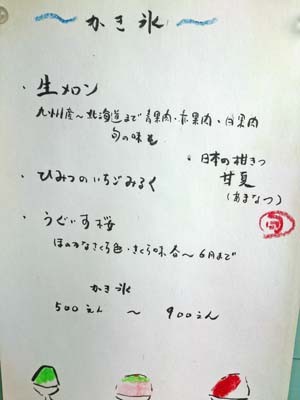 〜かき氷〜
・生メロン
九州産〜北海道まで青果肉・赤果肉・白果肉
旬の味を
・日本の柑きつ
甘夏
(あまなつ)
・ひみつのいちごみるく
・うぐいす桜
ほのかなさくら色・さくら味 春〜6月まで
かき氷
500えん 〜 900えん